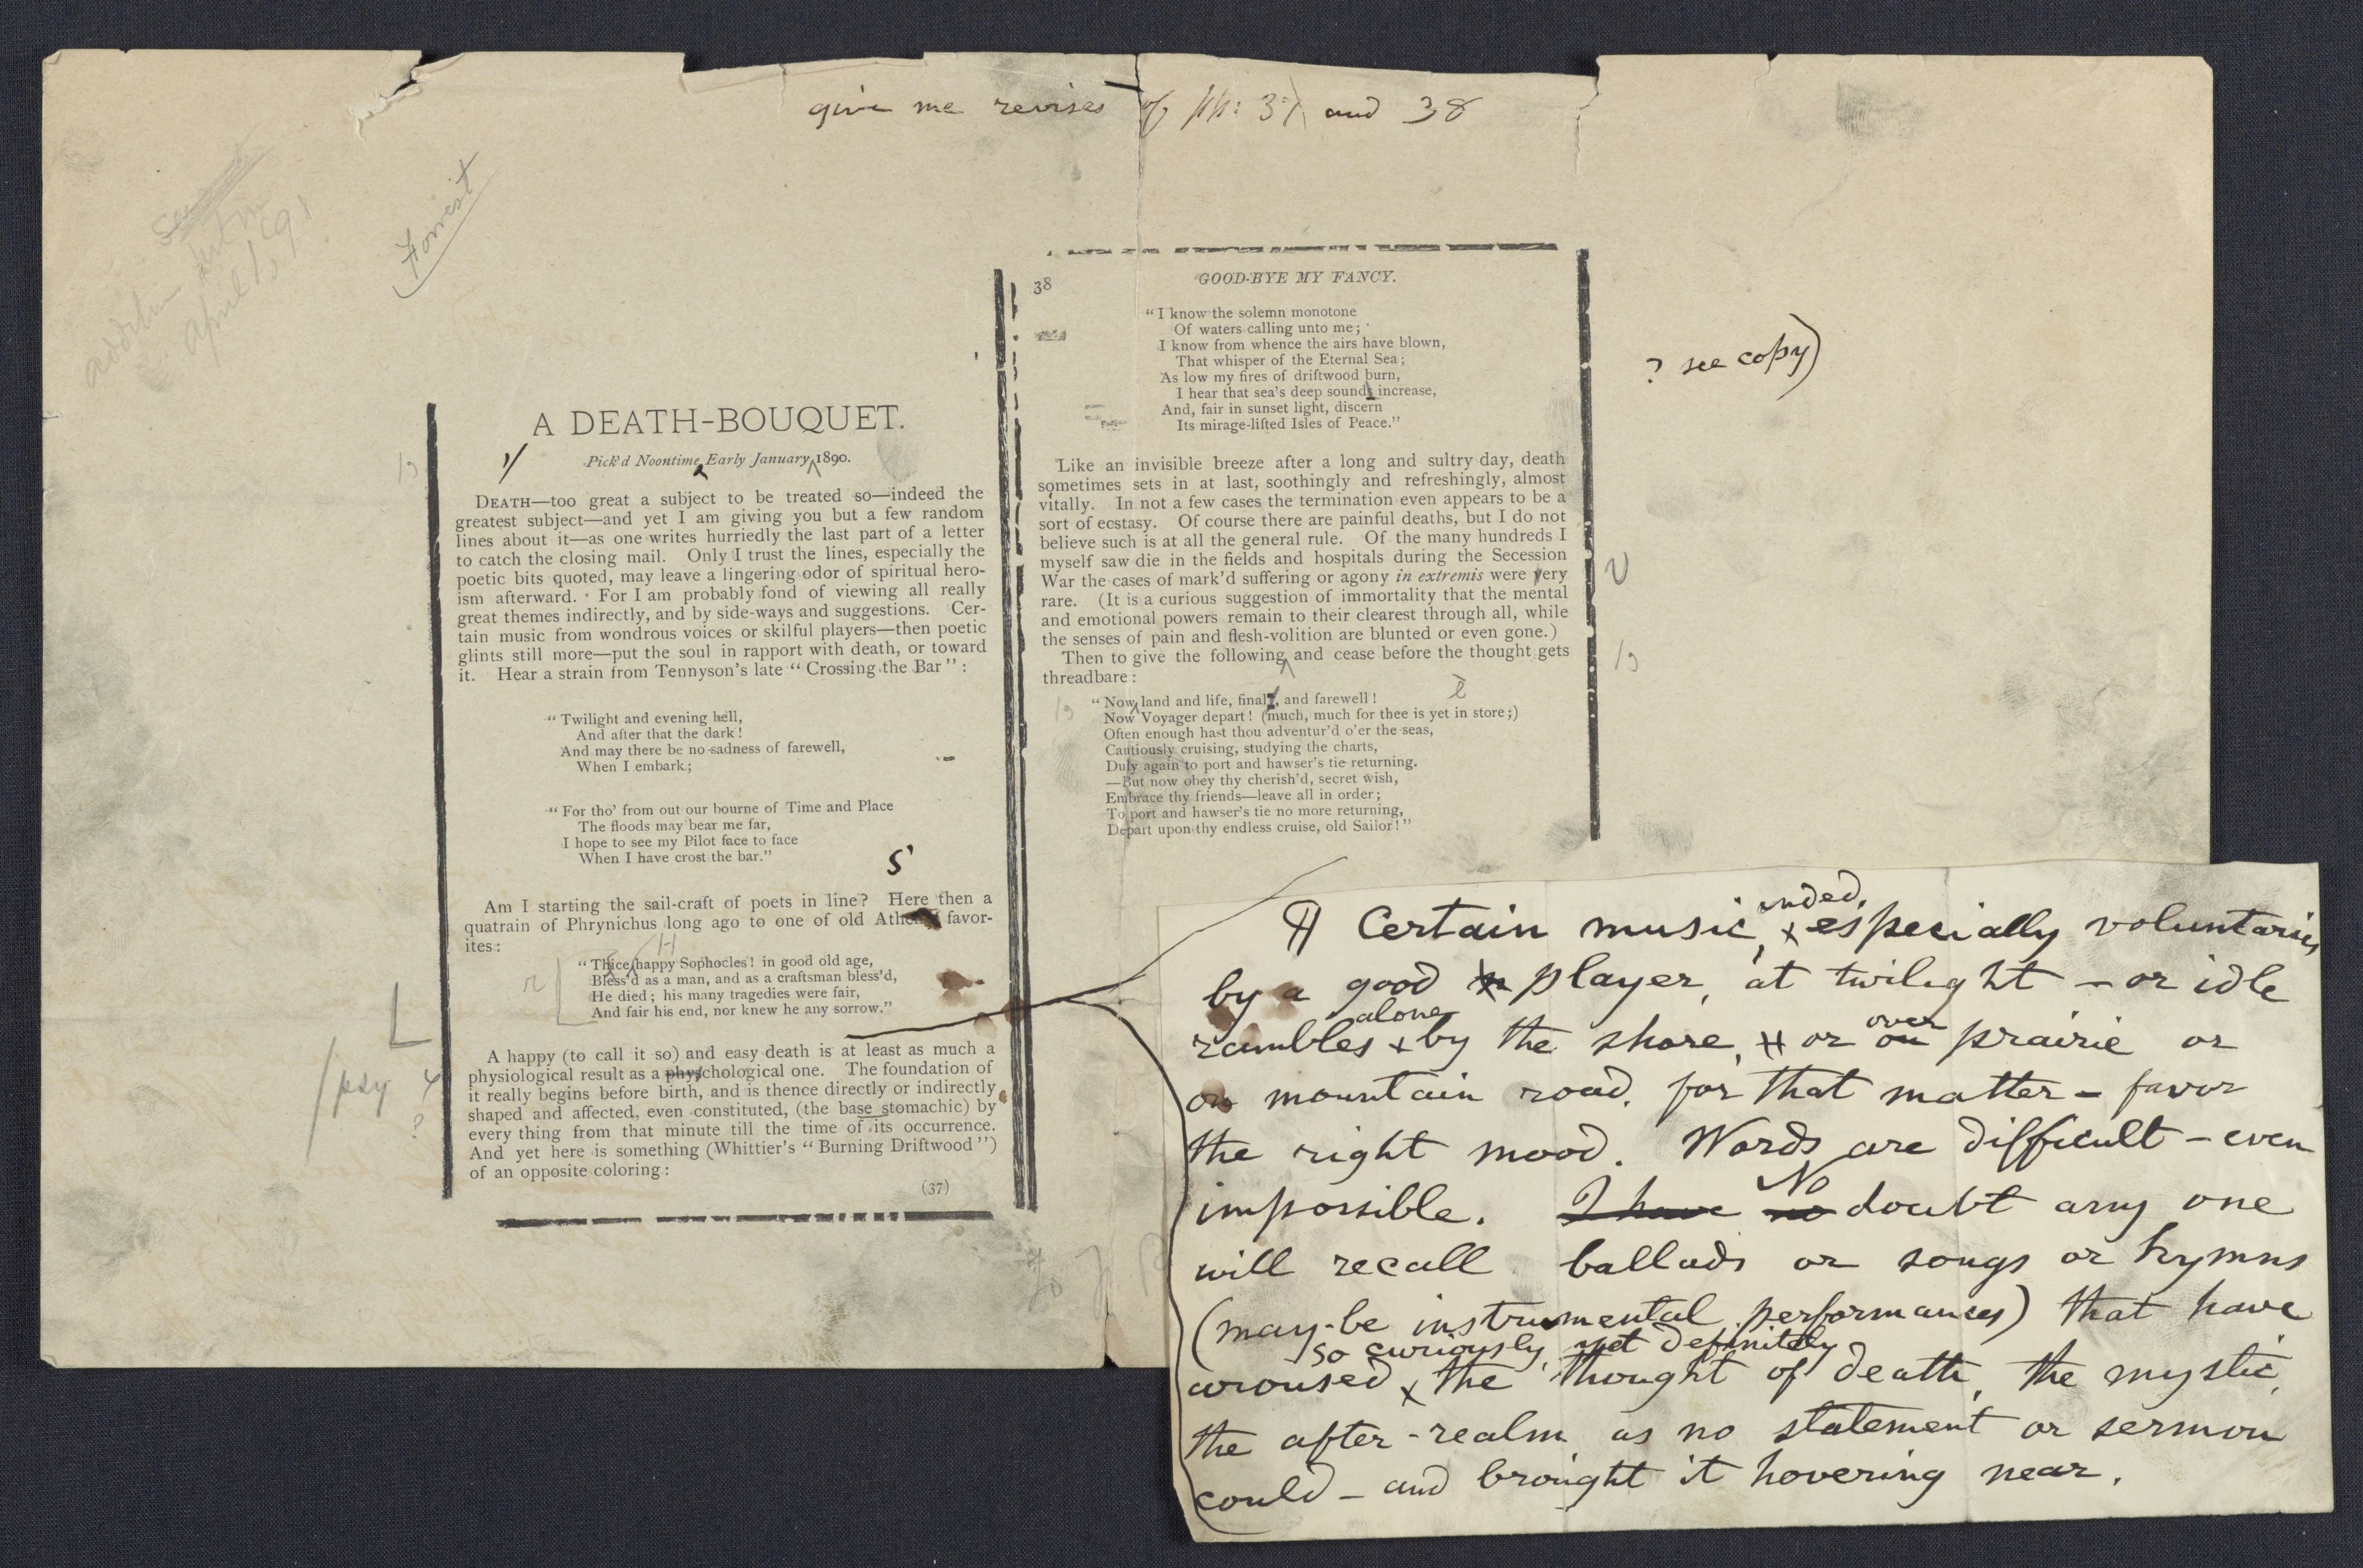 give me revises of pp: 37 and 38
Forrest
April 1, '91
A DEATH-BOUQUET.
Pick'd Noontime, Early January, 1890.
DEATH—too great a subject to be treated so—indeed the
greatest subject—and yet I am giving you but a few random
lines about it—as one writes hurriedly the last part of a letter
to catch the closing mail. Only I trust the lines, especially the
poetic bits quoted, may leave a lingering odor of spiritual hero-
ism afterward. For I am probably fond of viewing all really
great themes indirectly, and by side-ways and suggestions. Cer-
tain music from wondrous voices or skilful players—then poetic
glints still more—put the soul in rapport with death, or toward
it. Hear a strain from Tennyson's late "Crossing the Bar":
"Twilight and evening bell,
And after that the dark!
And may there be no sadness of farewell,
When I embark;
"For tho' from out our bourne of Time and Place
The floods may bear me far,
I hope to see my Pilot face to face
When I have crost the bar."
s'
Am I starting the sail-craft of poets in line? Here then a
quatrain of Phrynichus long ago to one of old Athens favor-
ites:
H
r
"Thice happy Sophocles! in good old age,
Bless'd as a man, and as a craftsman bless'd,
He died; his many tragedies were fair,
And fair his end, nor knew he any sorrow."
A happy (to call it so) and easy death is at least as much a
physiological result as a phychological one. The foundation of
/ psy
it really begins before birth, and is thence directly or indirectly
shaped and affected, even constituted, (the base stomachic) by
?
every thing from that minute till the time of its occurrence.
And yet here is something (Whittier's "Burning Driftwood")
of an opposite coloring:
(37)
38
GOOD-BYE MY FANCY.
"I know the solemn monotone
Of waters calling unto me;
I know from whence the airs have blown,
That whisper of the Eternal Sea;
? see copy)
As low my fires of driftwood burn,
I hear that sea's deep sounds increase,
And, fair in sunset light, discern
Its mirage-lifted Isles of Peace."
Like an invisible breeze after a long and sultry day, death
sometimes sets in at last, soothingly and refreshingly, almost
vitally. In not a few cases the termination even appears to be a
sort of ecstasy. Of course there are painful deaths, but I do not
believe such is at all the general rule. Of the many hundreds I
myself saw die in the fields and hospitals during the Secession
War the cases of mark'd suffering or agony in extremis were very
v
rare. (It is a curious suggestion of immortality that the mental
and emotional powers remain to their clearest through all, while
the senses of pain and flesh-volition are blunted or even gone.)
Then to give the following, and cease before the thought gets
threadbare:
"Now, land and life, finalè, and farewell!
Now Voyager depart! (much, much for thee is yet in store;)
Often enough hast thou adventur'd o'er the seas,
Cautiously cruising, studying the charts,
Duly again to port and hawser's tie returning.
—But now obey thy cherish'd, secret wish,
Embrace thy friends—leave all in order;
To port and hawser's tie no more returning,
Depart upon thy endless cruise, old Sailor!"
¶ Certain music, indeed, especially voluntaries
by a good player, at twilight – or idle
rambles alone by the shore, or on over prairie or
on mountain road, for that matter – favor
the right mood. Words are difficult – even
impossible. I have no No doubt any one
will recall ballads or songs or hymns
(may-be instrumental performances) that have
aroused so curiously, yet definitely the thought of death, the mystic,
the after-realm, as no statement or sermon
could – and brought it hovering near.